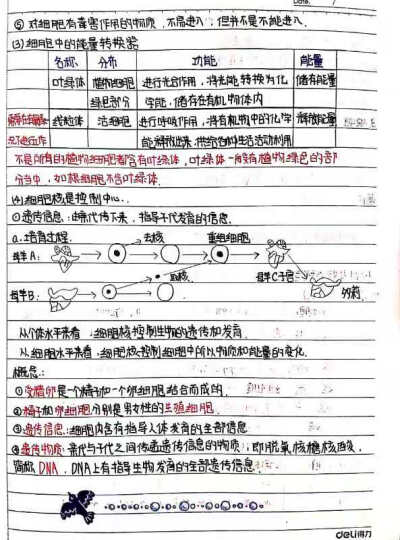 ⑤ 对细胞有毒害作用的物质,不易进入,但并不是不能进入。
(3)细胞中的能量转换器
名称 分布 功能 能量
叶绿体 植物细胞 进行光合作用,将光能转换为化 储存能量
绿色部分 学能,储存在有机物体内
线粒体 活细胞 进行呼吸作用,将有机物中的化学 释放能量
能释放出来,供给各种生活活动利用
不是所有的植物细胞都含有叶绿体,叶绿体一般在植物绿色的部
分当中,如根细胞不含叶绿体.
(4)细胞核是控制中心.
①遗传信息:
指导子代发育的信息.
a.培育过程. 去核 重组细胞
母羊A:
取核 母羊C子宫
母羊B:
从个体水平来看:细胞核控制生物的遗传和发育.
从细胞水平来看:细胞核控制细胞中所以物质和能量的变化.
概念:
①受精卵是一个精子和一个卵细胞结合而成的.
②精子和卵细胞分别是男女性的生殖细胞
③遗传信息:细胞内含有指导人体发育的全部信息
④遗传物质:亲代与子代之间传递遗传信息的物质,即脱氧核糖核酸,
简称DNA.DNA上有指导生物发育的全部遗传信息.
deli得力